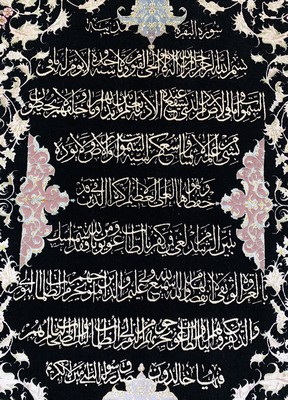 سورة البقرة مدنية
بسم الله الرحمن الرحيم الله لا إله إلا هو الحي القيوم لا تأخذه سنة ولا نوم له ما في
السموات وما في الأرض من ذا الذي يشفع عنده إلا بإذنه يعلم ما بين أيديهم وما خلفهم ولا يحيطون
بشيء من علمه إلا بما شاء وسع كرسيه السموات والأرض ولا يؤده
حفظهما وهو العلي العظيم لا إكراه في الدين قد
تبين الرشد من الغي فمن يكفر بالطاغوت ويؤمن بالله فقد استمسك
بالعروة الوثقى لا انفصام لها والله سميع عليم الله ولي الذين آمنوا يخرجهم من الظلمات إلى النور
والذين كفروا أولياؤهم الطاغوت يخرجونهم من النور إلى الظلمات أولئك أصحاب النار هم
فيها خالدون